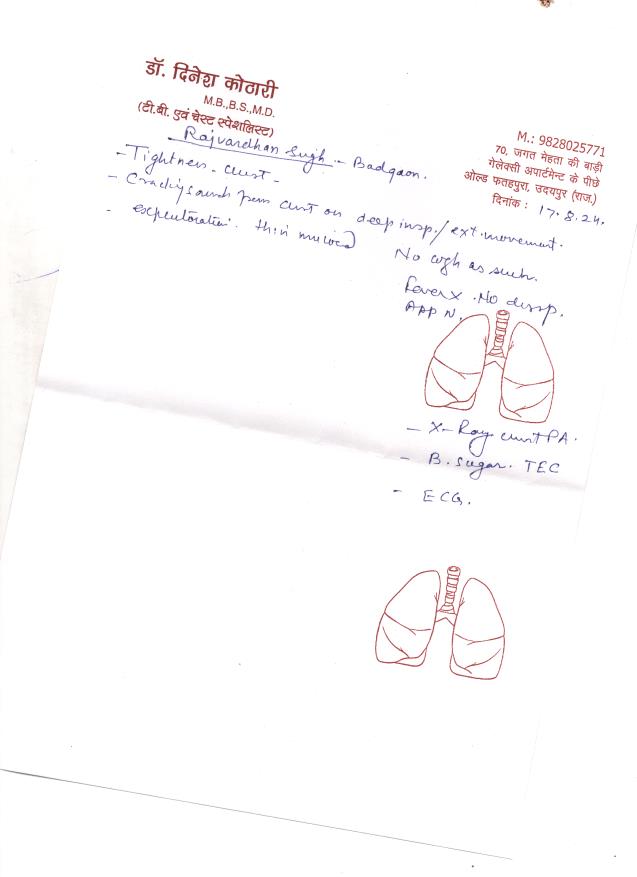 डॉ. दिनेश कोठारी
M.B.,B.S.,M.D.
(टी.बी. एवं चेस्ट स्पेशलिस्ट)
M.: 9828025771
70, जगत मेहता की बाड़ी
गेलेक्सी अपार्टमेन्ट के पीछे
ओल्ड फतहपुरा, उदयपुर (राज.)
दिनांक : 17.8.24.
Rajvardhan Singh - Badgaon.
- Tightness chest -
- Cracking sound from chest on deep insp./ext. movement.
- expectoration. thin mucoid
No cough as such.
Fever X . No dyssp.
APP N.
- X-Ray chest PA.
- B. Sugar. TEC
- ECG.